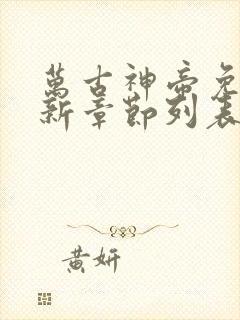 萬古神帝免
新章節列表
黃妍